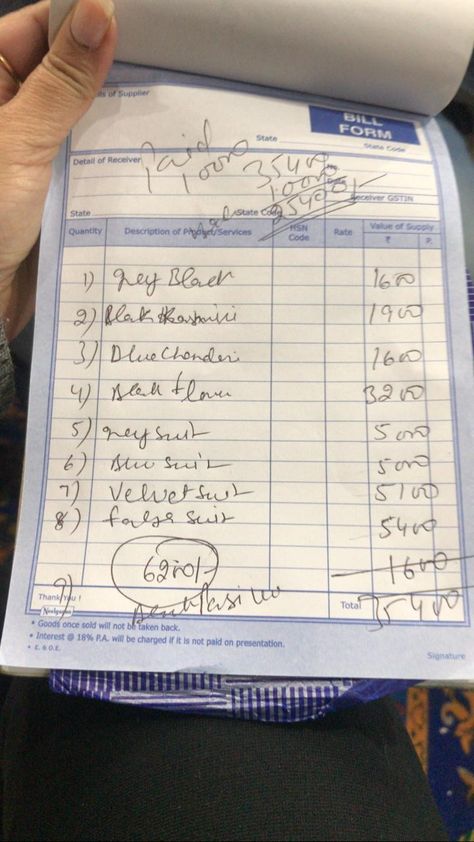 ils of Supplier
BILL
FORM
State
State Code
Detail of Receiver
Paid
10000
35400
10000
25400/-
Receiver GSTIN
State
State Code
Quantity Description of Product/Services HSN Code Rate Value of Supply
₹ P.
1) Grey Black 1600
2) Black Kashmiri 1900
3) Blue Chanderi 1600
4) Black flower 3200
5) Grey suit 5000
6) Blue suit 5000
7) Velvet suit 5100
8) suit 5400
6200/-
1600
9)
Thank You !
Total 35400
* Goods once sold will not be taken back.
* Interest @ 18% P.A. will be charged if it is not paid on presentation.
* E. & O.E.
Signature